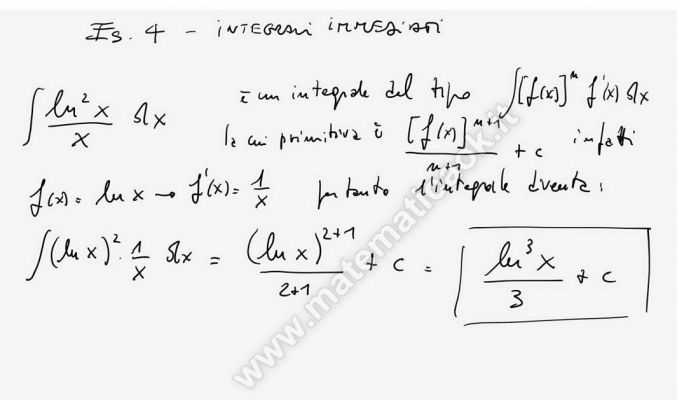 Es. 4 - INTEGRALI IMMEDIATI
∫ ln²x/x dx è un integrale del tipo ∫[f(x)]ⁿ f'(x) dx
la cui primitiva è [f(x)]ⁿ⁺¹/(n+1) + c infatti
f(x) = ln x → f'(x) = 1/x pertanto l'integrale diventa:
∫(ln x)² · 1/x dx = (ln x)²⁺¹/(2+1) + c = ln³x/3 + c
www.matematicaok.it